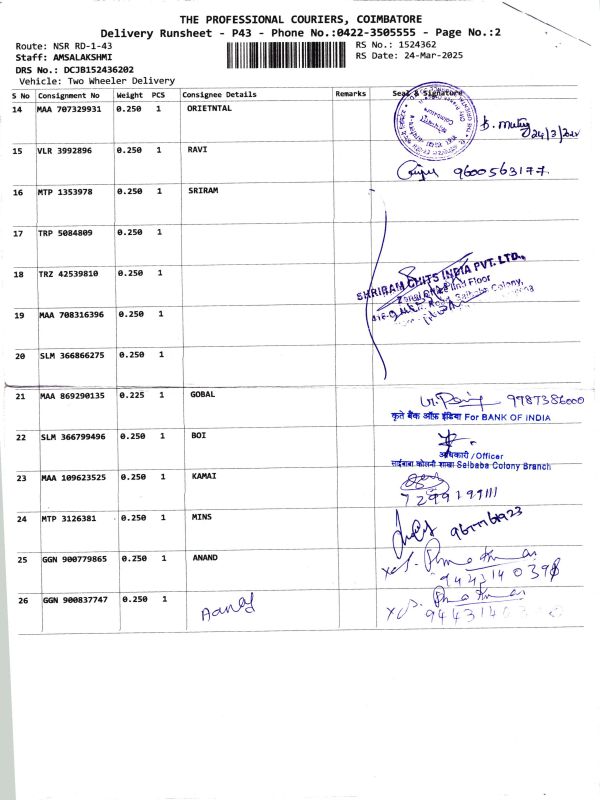 THE PROFESSIONAL COURIERS, COIMBATORE
Delivery Runsheet - P43 - Phone No.:0422-3505555 - Page No.:2
Route: NSR RD-1-43
RS No.: 1524362
Staff: AMSALAKSHMI
RS Date: 24-Mar-2025
DRS No.: DCJB152436202
Vehicle: Two Wheeler Delivery
S No Consignment No Weight PCS Consignee Details Remarks Seal & Signature
14 MAA 707329931 0.250 1 ORIETNTAL
24/3/2025
15 VLR 3992896 0.250 1 RAVI
9600563177.
16 MTP 1353978 0.250 1 SRIRAM
17 TRP 5084809 0.250 1
18 TRZ 42539810 0.250 1
SHRIRAM CHITS INDIA PVT. LTD.,
IInd Floor
Saibaba Colony,
19 MAA 708316396 0.250 1
20 SLM 366866275 0.250 1
21 MAA 869290135 0.225 1 GOBAL 9787386000
कृते बैंक ऑफ़ इंडिया For BANK OF INDIA
22 SLM 366799496 0.250 1 BOI
अधिकारी /Officer
साईबाबा कोलनी शाखा Saibaba Colony Branch
23 MAA 109623525 0.250 1 KAMAI
7299199111
24 MTP 3126381 0.250 1 MINS
25 GGN 900779865 0.250 1 ANAND
26 GGN 900837747 0.250 1 Aanad